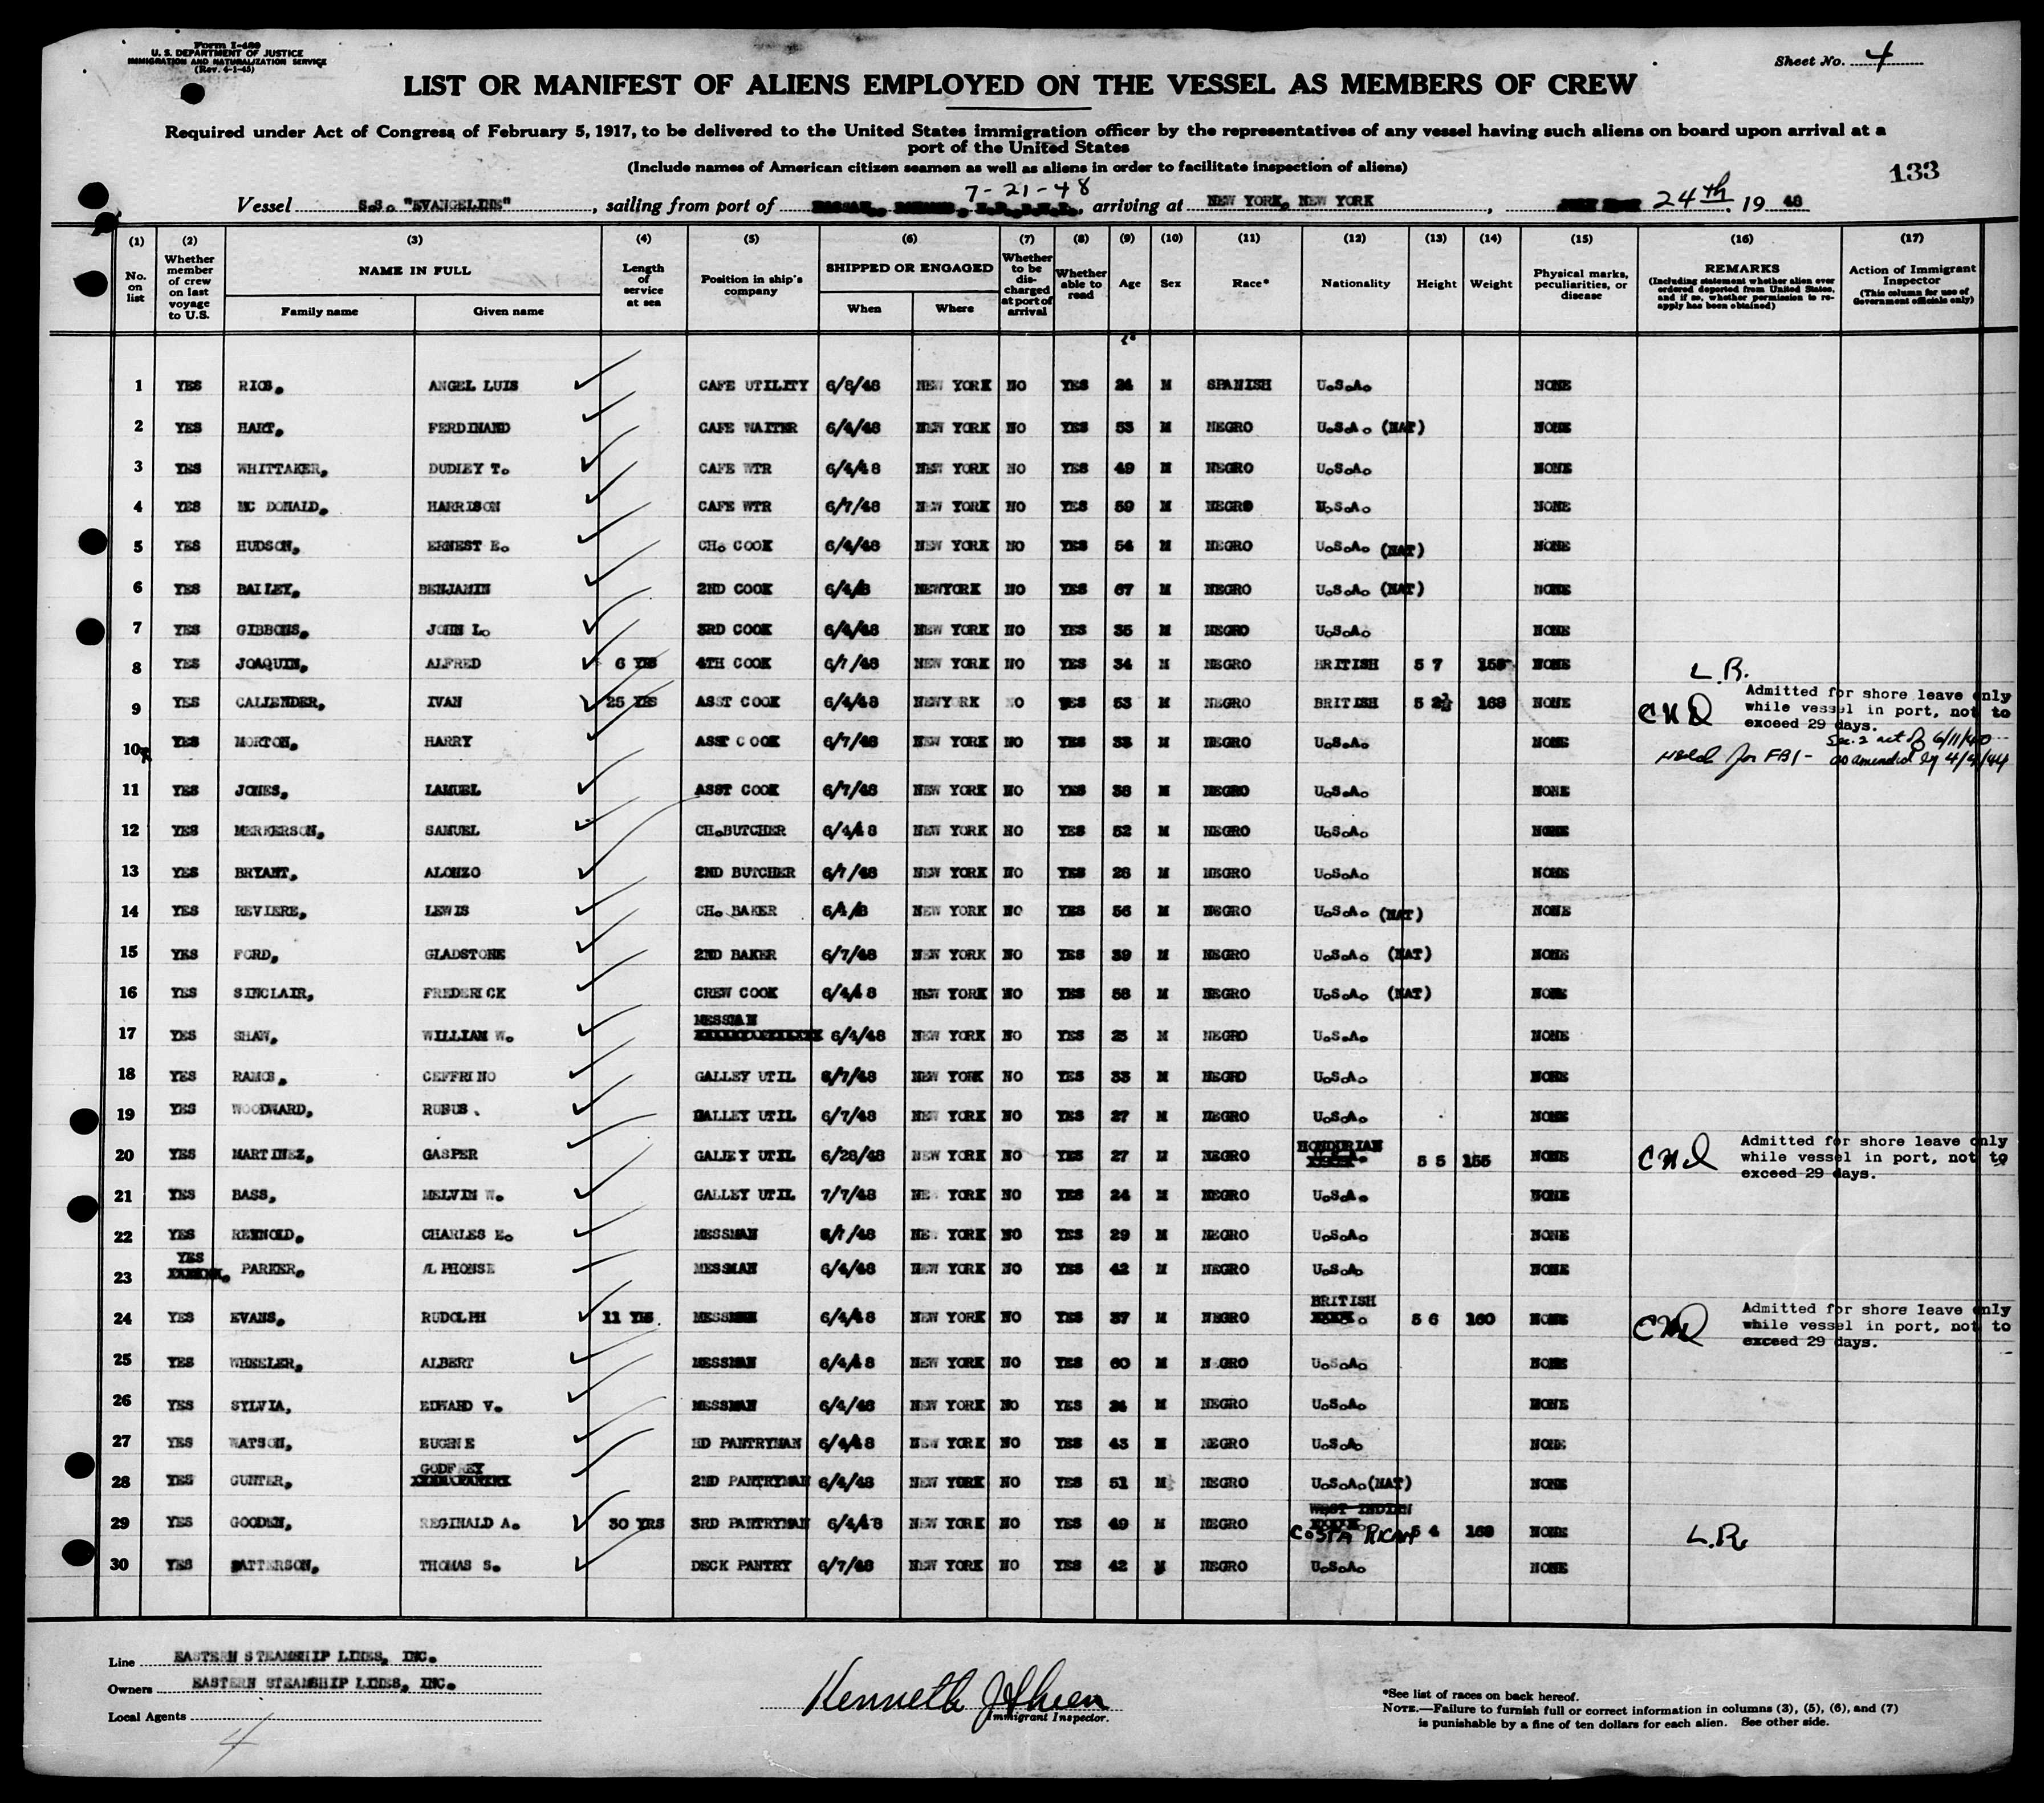 Form I-489
U. S. DEPARTMENT OF JUSTICE
IMMIGRATION AND NATURALIZATION SERVICE
(Rev. 4-1-45)
Sheet No. 4
LIST OR MANIFEST OF ALIENS EMPLOYED ON THE VESSEL AS MEMBERS OF CREW
Required under Act of Congress of February 5, 1917, to be delivered to the United States immigration officer by the representatives of any vessel having such aliens on board upon arrival at a
port of the United States
(Include names of American citizen seamen as well as aliens in order to facilitate inspection of aliens)
133
7-21-48
Vessel S.S. "EVANGELINE", sailing from port of , arriving at NEW YORK, NEW YORK, 24th, 19 48
(1) (2) (3) (4) (5) (6) (7) (8) (9) (10) (11) (12) (13) (14) (15) (16) (17)
No. on list
Whether member of crew on last voyage to U.S.
NAME IN FULL
Family name
Given name
Length of service at sea
Position in ship's company
SHIPPED OR ENGAGED
When
Where
Whether to be discharged at port of arrival
Whether able to read
Age
Sex
Race*
Nationality
Height
Weight
Physical marks, peculiarities, or disease
REMARKS
(Including statement whether alien ever ordered deported from United States, and if so, whether permission to re-apply has been obtained)
Action of Immigrant Inspector
(This column for use of Government officials only)
1 YES RIOS, ANGEL LUIS CAFE UTILITY 6/8/48 NEW YORK NO YES 24 M SPANISH U.S.A. NONE
2 YES HART, FERDINAND CAFE WAITER 6/4/48 NEW YORK NO YES 53 M NEGRO U.S.A. (NAT) NONE
3 YES WHITTAKER, DUDLEY T. CAFE WTR 6/4/48 NEW YORK NO YES 49 M NEGRO U.S.A. NONE
4 YES MC DONALD, HARRISON CAFE WTR 6/7/48 NEW YORK NO YES 59 M NEGRO U.S.A. NONE
5 YES HUDSON, ERNEST E. CH. COOK 6/4/48 NEW YORK NO YES 54 M NEGRO U.S.A. (NAT) NONE
6 YES BAILEY, BENJAMIN 2ND COOK 6/4/8 NEWYORK NO YES 67 M NEGRO U.S.A. (NAT) NONE
7 YES GIBBONS, JOHN L. 3RD COOK 6/4/48 NEW YORK NO YES 35 M NEGRO U.S.A. NONE
8 YES JOAQUIN, ALFRED 6 YRS 4TH COOK 6/7/48 NEW YORK NO YES 34 M NEGRO BRITISH 5 7 155 NONE L.R.
9 YES CALLENDER, IVAN 25 YRS ASST COOK 6/4/48 NEWYORK NO YES 53 M NEGRO BRITISH 5 2½ 168 NONE
Admitted for shore leave only
while vessel in port, not to
exceed 29 days.
Sec. 2 act of 6/11/40
10 YES MORTON, HARRY ASST COOK 6/7/48 NEW YORK NO YES 33 M NEGRO U.S.A. NONE Held for FBI - as amended by 4/4/44
11 YES JONES, LAMUEL ASST COOK 6/7/48 NEW YORK NO YES 38 M NEGRO U.S.A. NONE
12 YES MERKERSON, SAMUEL CH.BUTCHER 6/4/48 NEW YORK NO YES 52 M NEGRO U.S.A. NONE
13 YES BRYANT, ALONZO 2ND BUTCHER 6/7/48 NEW YORK NO YES 28 M NEGRO U.S.A. NONE
14 YES REVIERE, LEWIS CH. BAKER 6/4/8 NEW YORK NO YES 56 M NEGRO U.S.A. (NAT) NONE
15 YES FORD, GLADSTONE 2ND BAKER 6/7/48 NEW YORK NO YES 39 M NEGRO U.S.A. (NAT) NONE
16 YES SINCLAIR, FREDERICK CREW COOK 6/4/48 NEW YORK NO YES 58 M NEGRO U.S.A. (NAT) NONE
17 YES SHAW, WILLIAM W. MESSMAN 6/4/48 NEW YORK NO YES 25 M NEGRO U.S.A. NONE
18 YES RAMOS, CEFFRINO GALLEY UTIL 6/7/48 NEW YORK NO YES 33 M NEGRO U.S.A. NONE
19 YES WOODWARD, RUFUS. GALLEY UTIL 6/7/48 NEW YORK NO YES 27 M NEGRO U.S.A. NONE
20 YES MARTINEZ, GASPER GALLEY UTIL 6/28/48 NEW YORK NO YES 27 M NEGRO HONDURIAN 5 5 155 NONE
Admitted for shore leave only
while vessel in port, not to
exceed 29 days.
21 YES BASS, MELVIN W. GALLEY UTIL 7/7/48 NEW YORK NO YES 24 M NEGRO U.S.A. NONE
22 YES REYNOLD, CHARLES E. MESSMAN 6/7/48 NEW YORK NO YES 29 M NEGRO U.S.A. NONE
23 YES PARKER, ALPHONSE MESSMAN 6/4/48 NEW YORK NO YES 42 M NEGRO U.S.A. NONE
24 YES EVANS, RUDOLPH 11 YRS. MESSMAN 6/4/48 NEW YORK NO YES 37 M NEGRO BRITISH 5 6 160 NONE
Admitted for shore leave only
while vessel in port, not to
exceed 29 days.
25 YES WHEELER, ALBERT MESSMAN 6/4/48 NEW YORK NO YES 60 M NEGRO U.S.A. NONE
26 YES SYLVIA, EDWARD V. MESSMAN 6/4/48 NEW YORK NO YES 24 M NEGRO U.S.A. NONE
27 YES WATSON, EUGENE HD PANTRYMAN 6/4/48 NEW YORK NO YES 43 M NEGRO U.S.A. NONE
28 YES GUNTER, GODFREY 2ND PANTRYMAN 6/4/48 NEW YORK NO YES 51 M NEGRO U.S.A.(NAT) NONE
29 YES GOODEN, REGINALD A. 30 YRS 3RD PANTRYMAN 6/4/48 NEW YORK NO YES 49 M NEGRO WEST INDIEN COSTA RICAN 5 4 168 NONE L.R.
30 YES PATTERSON, THOMAS S. DECK PANTRY 6/7/48 NEW YORK NO YES 42 M NEGRO U.S.A. NONE
Line EASTERN STEAMSHIP LINES, INC.
Owners EASTERN STEAMSHIP LINES, INC.
Local Agents
4
Kenneth J Shien
Immigrant Inspector.
*See list of races on back hereof.
NOTE.—Failure to furnish full or correct information in columns (3), (5), (6), and (7)
is punishable by a fine of ten dollars for each alien. See other side.